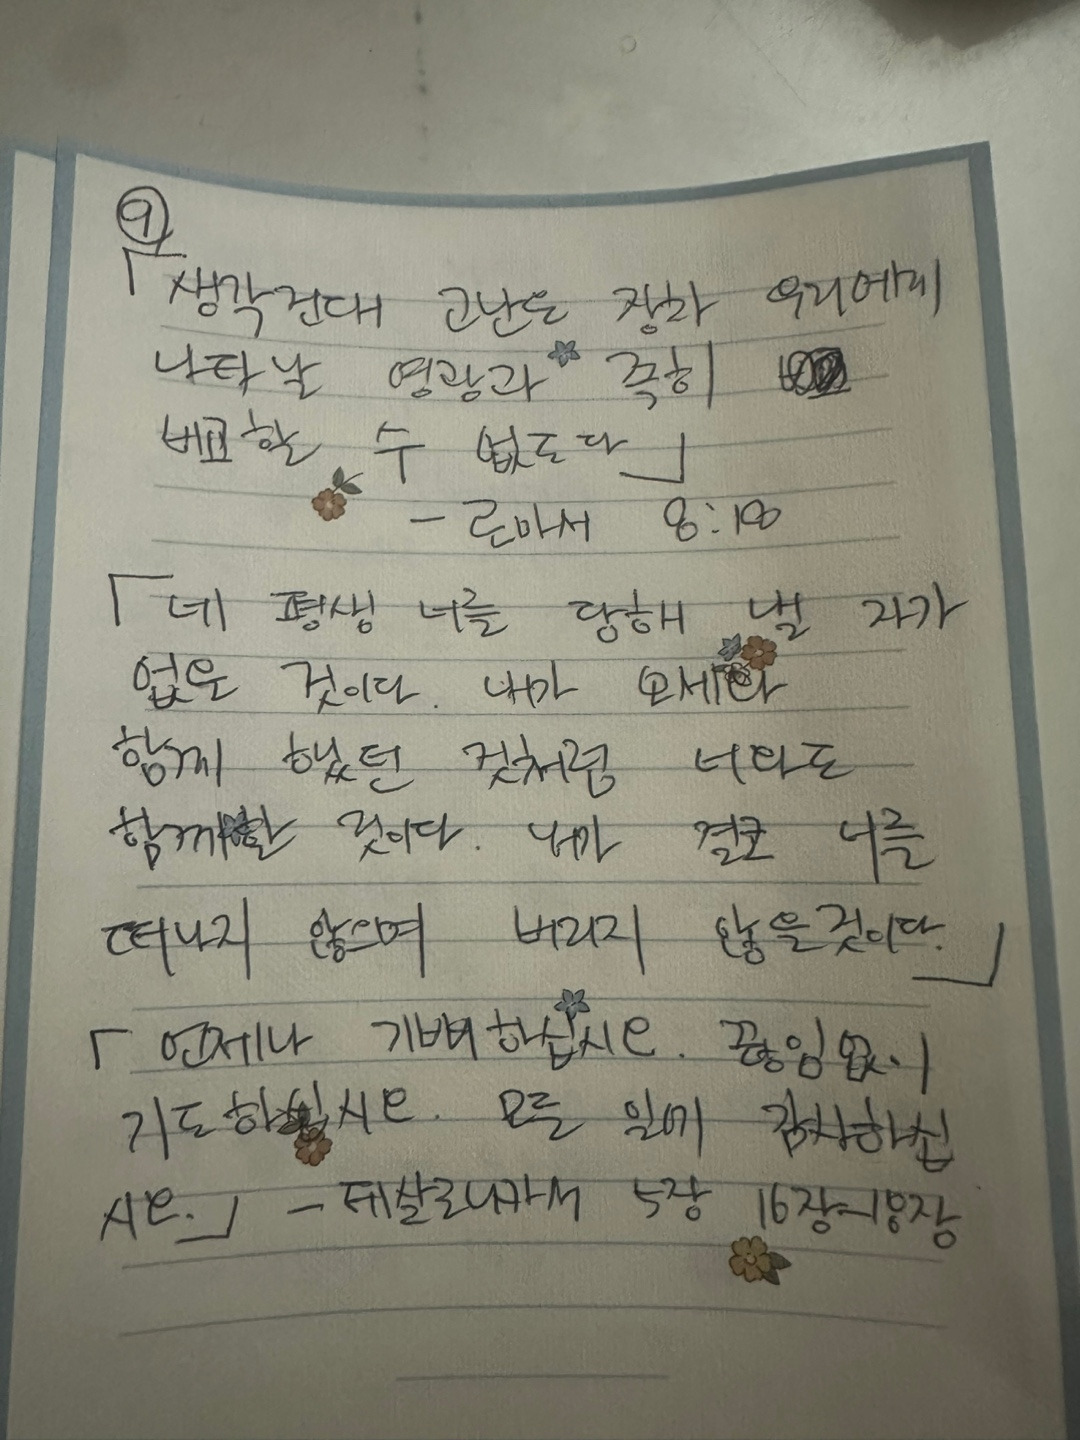 ⑨
「생각건대 고난은 장차 우리에게
나타날 영광과 족히
비교할 수 없도다」
- 로마서 8:18
「네 평생 너를 당해 낼 자가
없을 것이다. 내가 모세와
함께 했던 것처럼 너와도
함께할 것이다. 내가 결코 너를
떠나지 않으며 버리지 않을것이다.」
「언제나 기뻐하십시오. 끊임없이
기도하십시오. 모든 일에 감사하십
시오.」 - 데살로니가서 5장 16장-18장